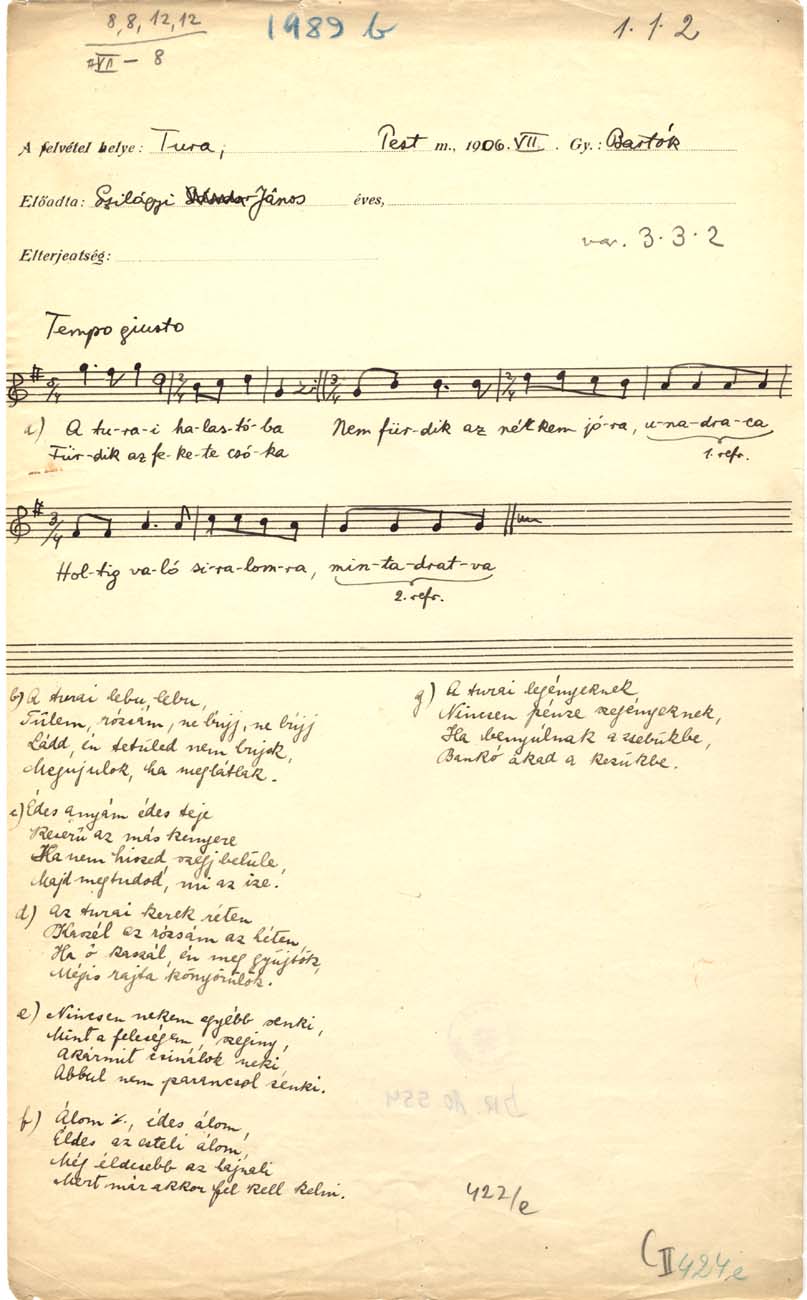 8, 8, 12, 12
VII – 8
1989 b
1. 1. 2
A felvétel helye: Tura, Pest m., 1906. VII. Gy.: Bartók
Előadta: Szilágyi János éves,
var. 3. 3. 2
Elterjedtség:
Tempo giusto
5/4 3/4 2 3/4 2/4
a) A tu-ra-i ha-las-tó-ba Nem für-dik az nélkem jó-ra, u-na-dra-ca
Für-dik az fe-ke-te csó-ka 1. refr.
3/4
Hol-tig va-ló si-ra-lom-ra, min-ta-drat-va
2. refr.
b) A turai lebu, lebu,
Tűlem, rózsám, ne bújj, ne bújj
Ládd, én tetűled nem bújok,
Megujulok, ha meglátlak.
c) Édes anyám édes teje
Keserű az más kenyere
Ha nem hiszed szegj belüle,
Majd megtudod, mi az ize.
d) Az turai kerek réten
Kaszál az rózsám az héten,
Ha ő kaszál, én meg gyűjtök,
Mégis rajta könyörülök.
e) Nincsen nekem egyébb senki,
Mint a feleségem, szegíny,
Akármit csinálok neki
Abbul nem parancsol senki.
f) Álom ٪, édes álom,
Éldes az esteli álom,
Még éldesebb az hajnali
Mert már akkor fel kell kelni.
g) A turai legényeknek
Nincsen pénze szegényeknek,
Ha benyúlnak a zsebükbe,
Bankó akad a kezükbe.
422/e
C II 424 e